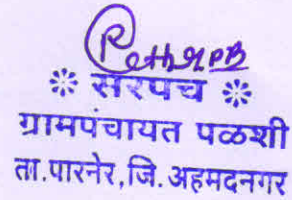 ❊ सरपंच ❊
ग्रामपंचायत पळशी
ता.पारनेर,जि.अहमदनगर